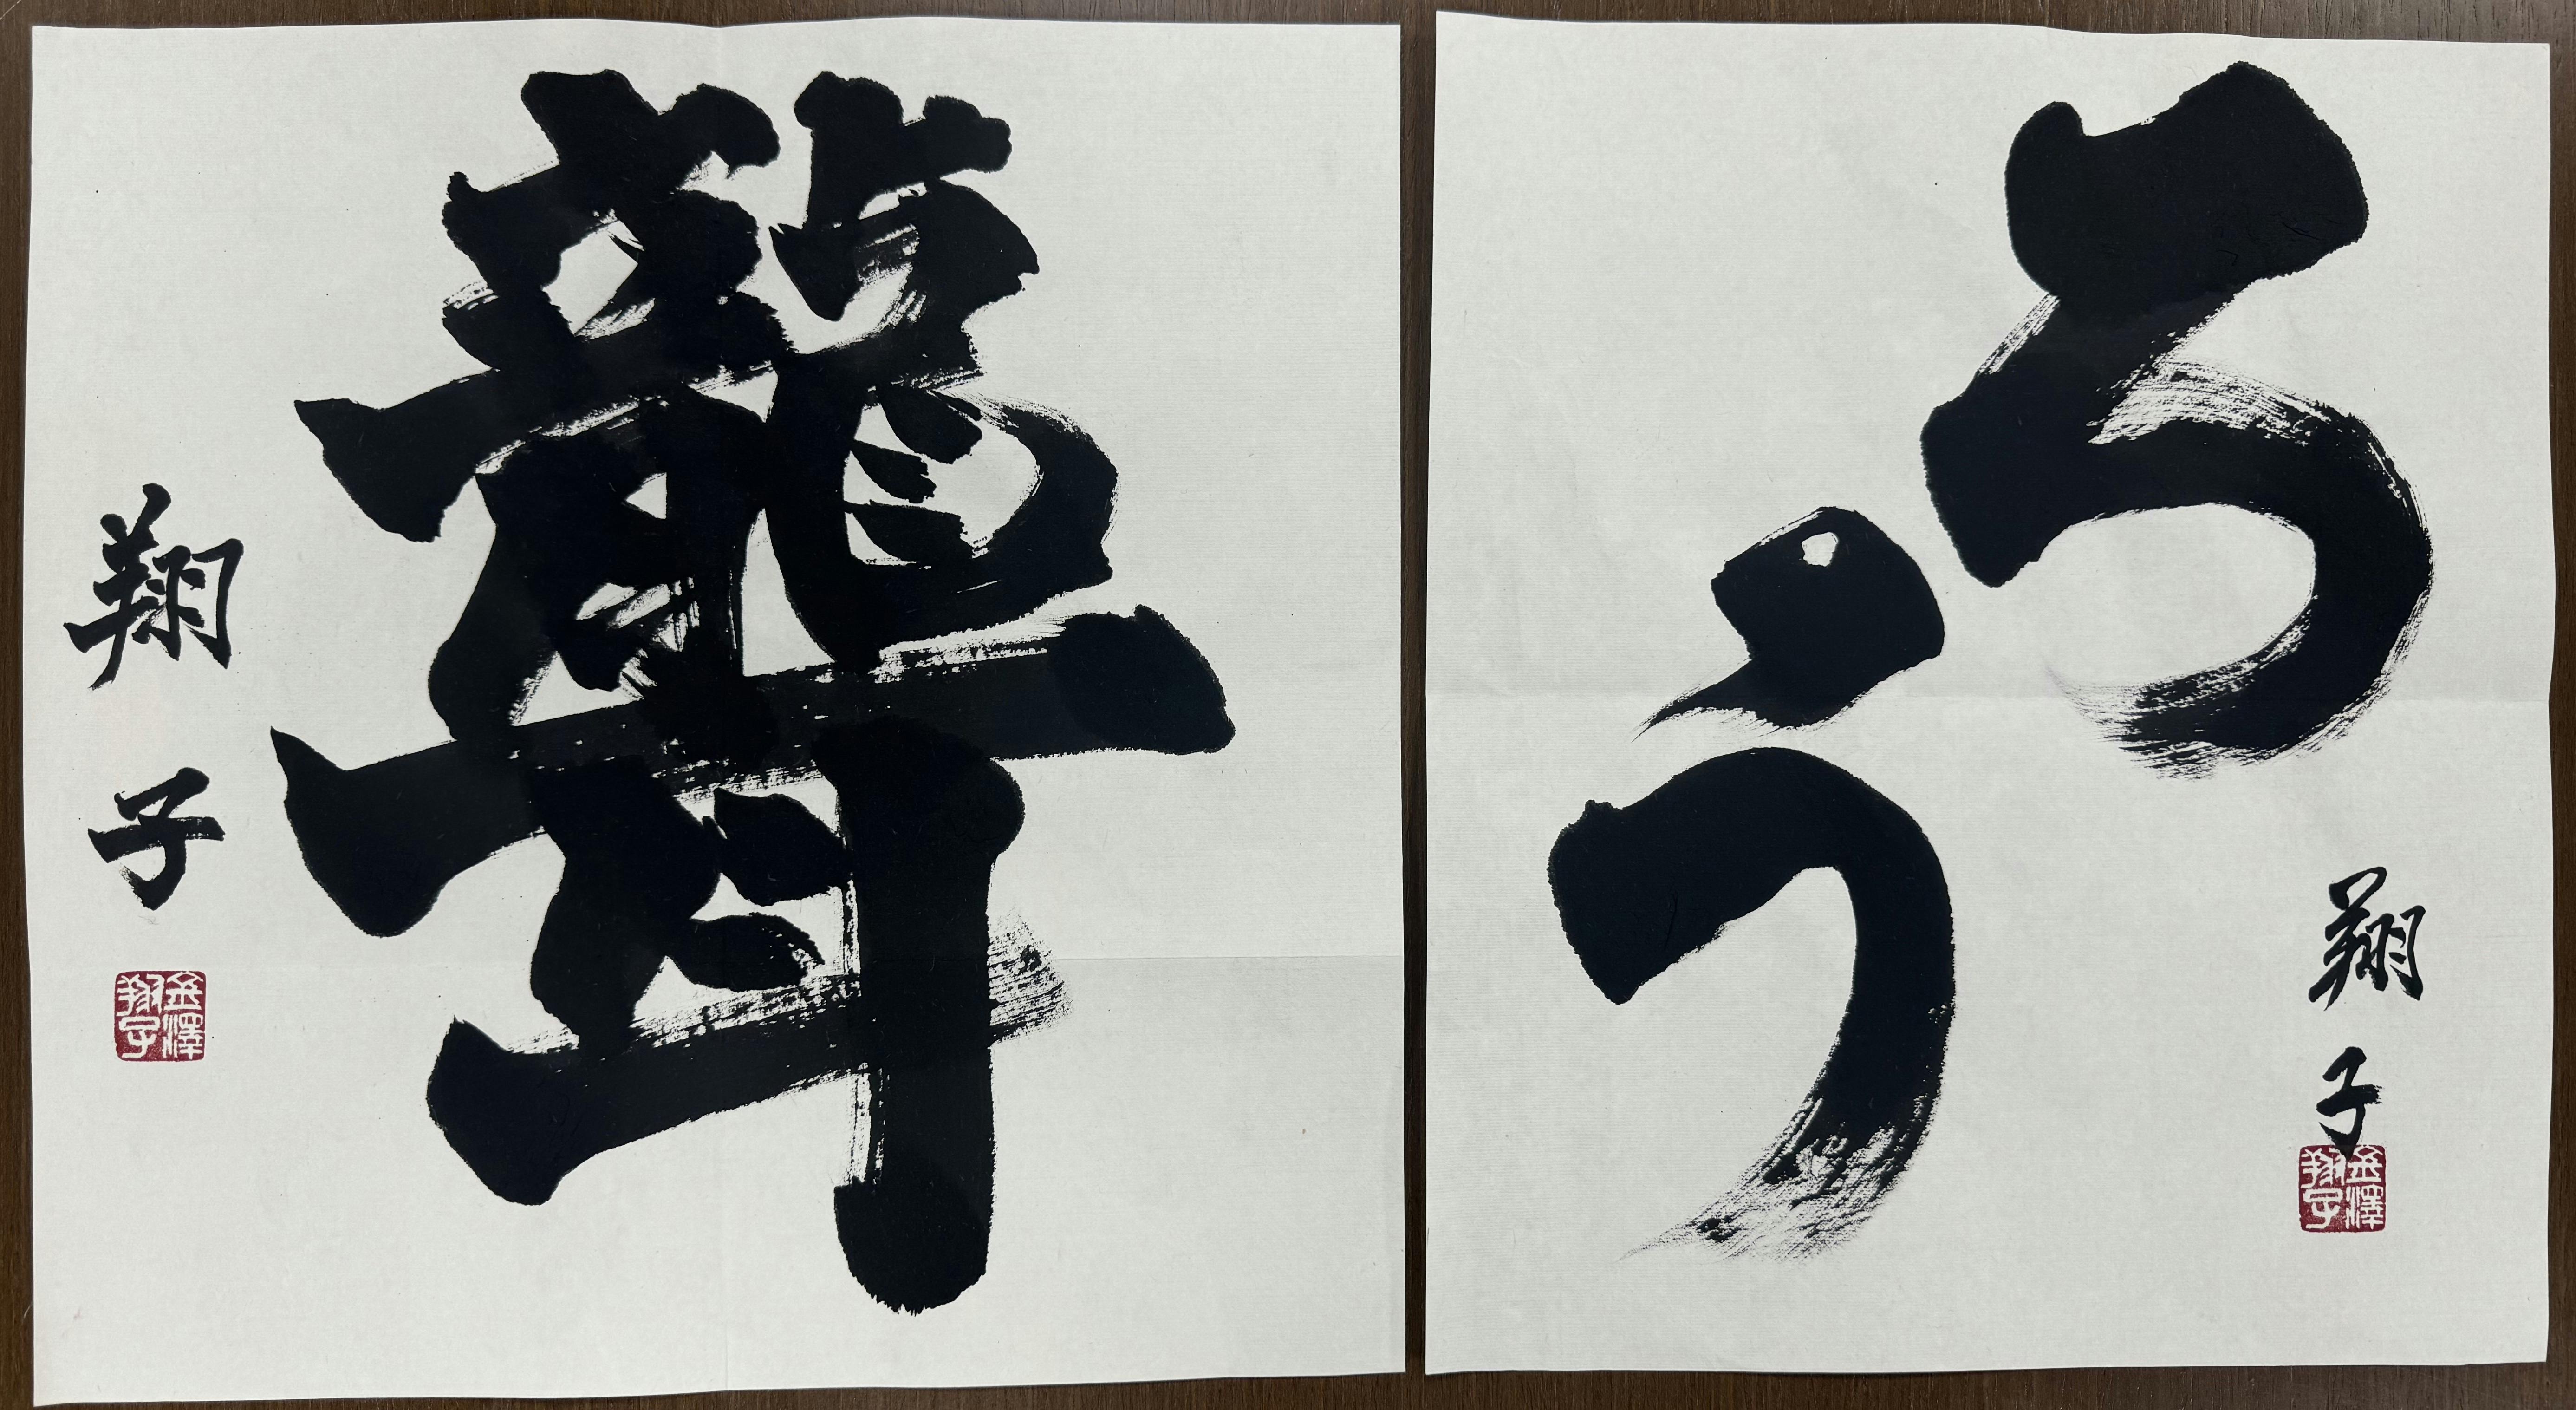 聾
翔子
金澤翔子
ろう
翔子
金澤翔子